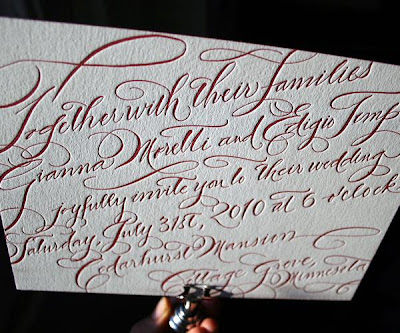 Together with their families
Gianna Morelli and Edigio Temp
joyfully invite you to their wedding
Saturday, July 31st, 2010 at 6 o'clock
Cedarhurst Mansion
Cottage Grove, Minnesota